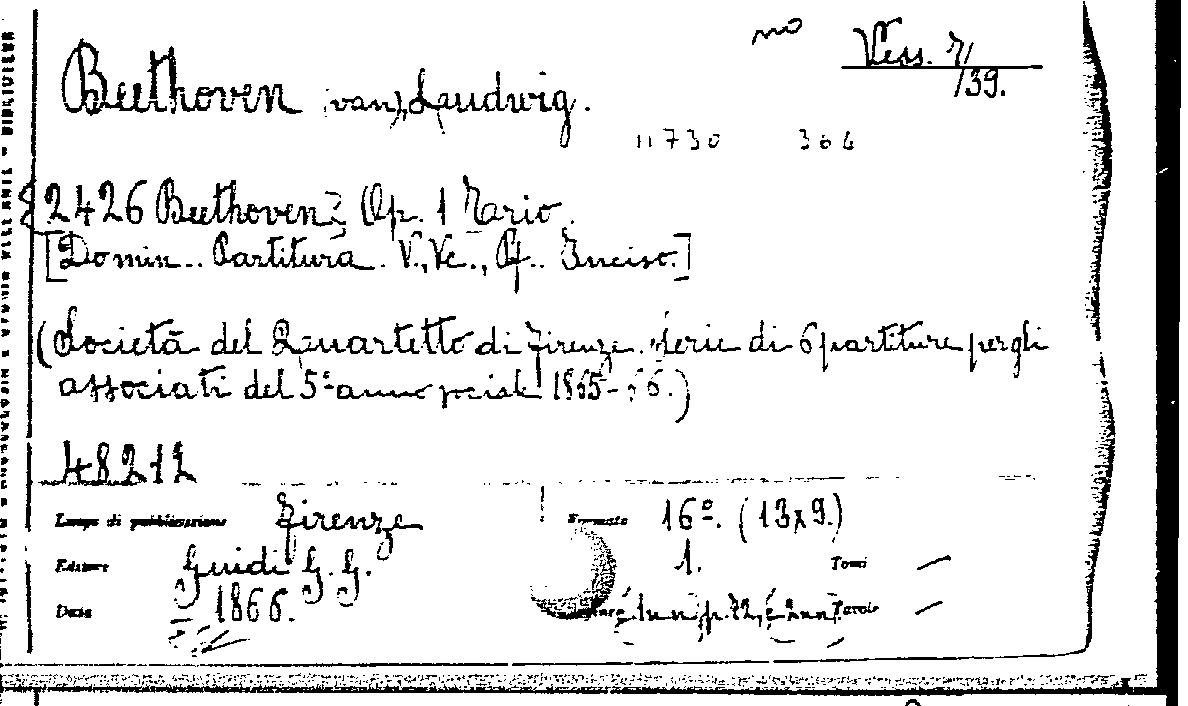 no
Vess. 7/
/139.
Beethoven (van), Laudwig.
11730 364
2426 Beethoven Op. 1 Terio.
[Domin.. Partitura. V., Vc., Pf.. Inciso.]
(Società del Quartetto di Firenze. Serie di 6 partiture per gli
associati del 5º anno sociale 1865-66.)
48212
Luogo di pubblicazione Firenze
Formato 16º. (13x9.)
Editore Guidi G. G.
1. Tomi —
Data 1866.
p. 72, e 2 nn. Tavole —